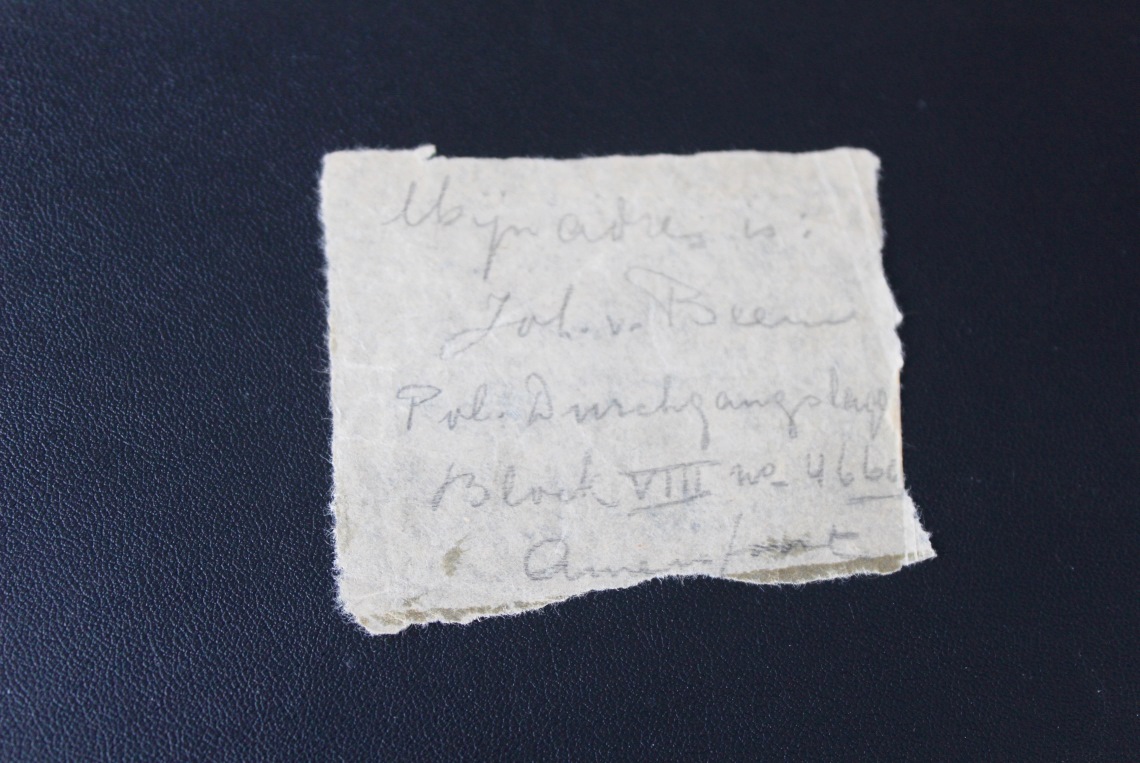 Mijn adres is:
Joh. v. Beem
Pol. Durchgangslag
Block VIII no. 466
Amersfoort